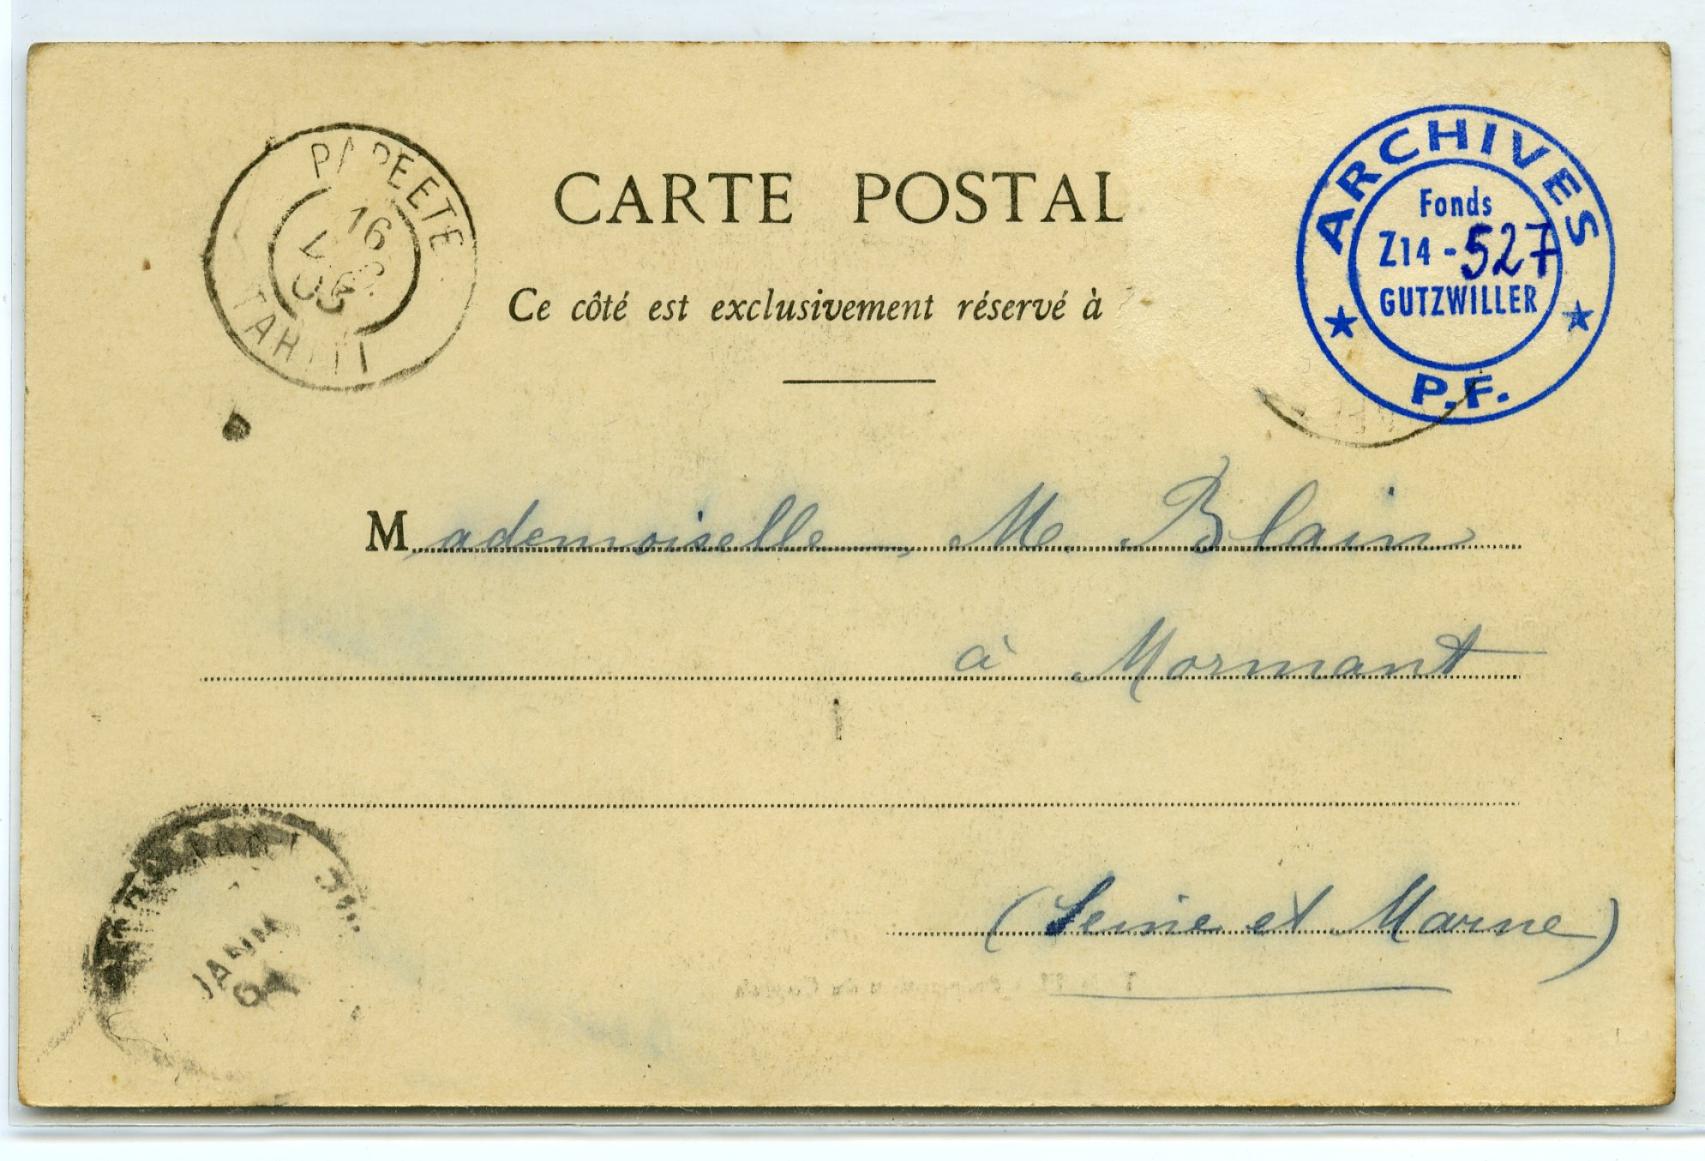 PAPEETE
16
03
TAHITI
CARTE POSTAL
Ce côté est exclusivement réservé à
ARCHIVES
Fonds
Z14 - 527
GUTZWILLER
P.F.
Mademoiselle M. Blain
à Mormant
(Seine et Marne)
JANV
04